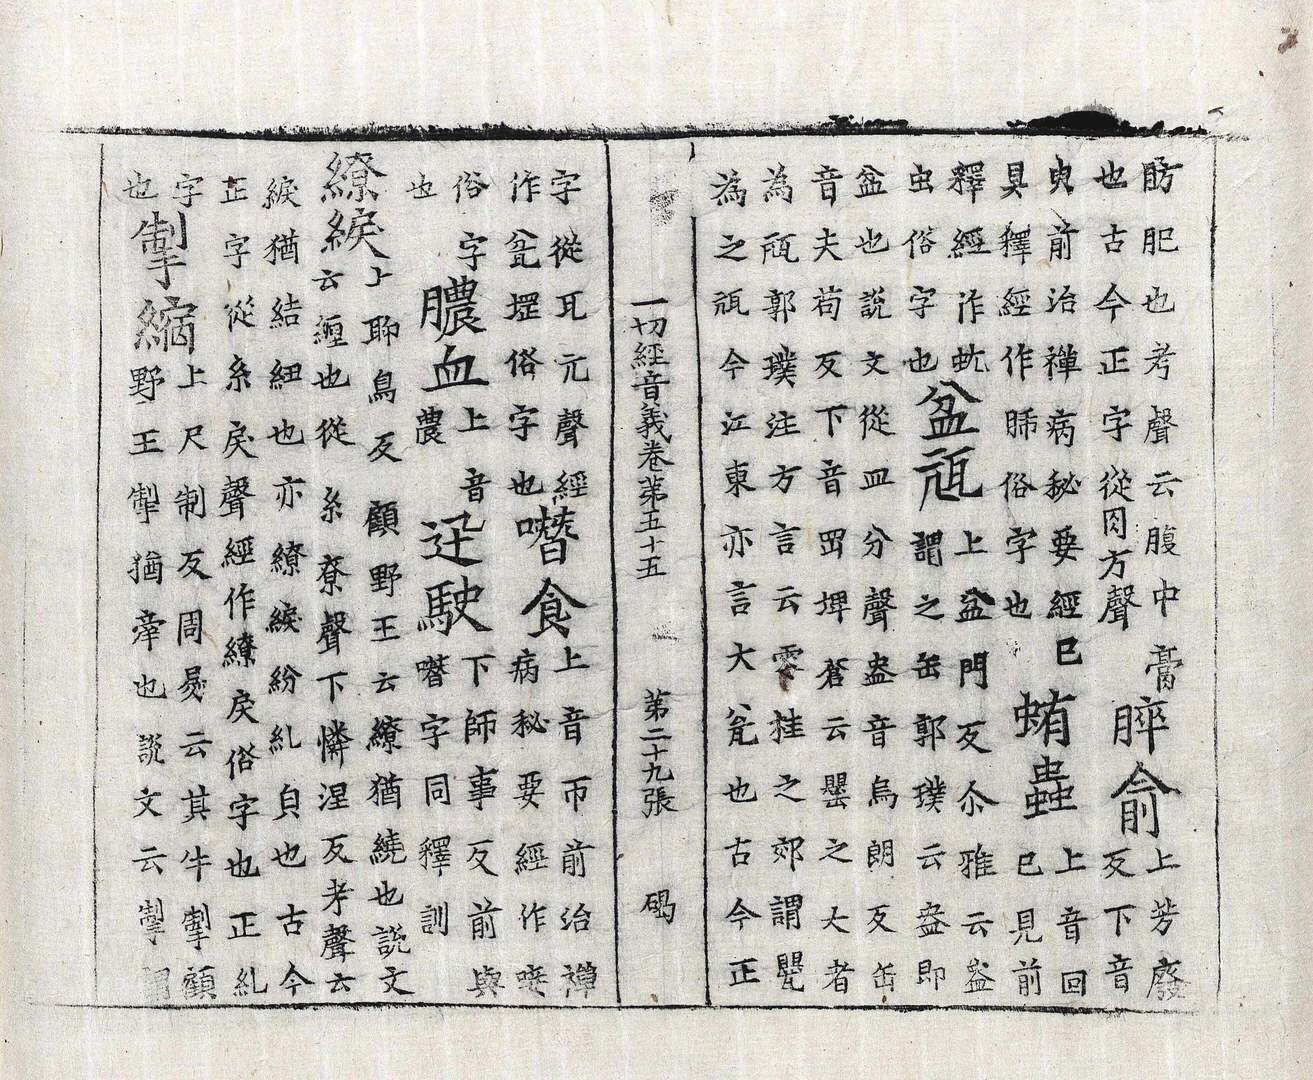 肪肥也考聲云腹中膏
也古今正字從肉方聲
脺俞
上芳廢
反下音
臾前治禪病秘要經已
具釋經作䏶俗字也
蛕蟲
上音回
已見前
釋經作蚘
虫俗字也
盆瓨
上盆門反尒雅云盎
謂之缶郭璞云盎即
盆也說文從皿分聲盎音烏朗反缶
音夫苟反下音罡埤蒼云甖之大者
為瓨郭璞注方言云零桂之郊謂甖
為之瓨今江東亦言大瓮也古今正
一切經音義卷第五十五 第二十九張 碣
字從瓦元聲經
作瓮堽俗字也
噆食
上音帀前治禪
病秘要經作唼
俗字
也
膿血
上音
農
迊駛
下師事反前與
噆字同釋訓
繚綟
上聊鳥反顧野王云繚猶繞也說文
云纏也從糸尞聲下憐涅反考聲云
綟猶結紐也亦繚綟紛糺皃也古今
正字從糸戾聲經作繚戾俗字也正糺
字
也
掣縮
上尺制反周易云其牛掣顧
野王掣猶牽也說文云掣